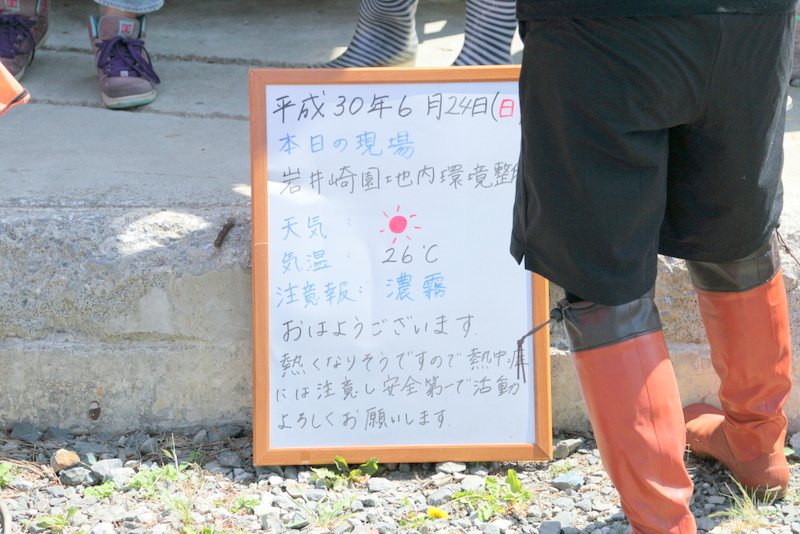 平成30年6月24日(日
本日の現場
岩井崎園地内環境整
天気：
気温：26℃
注意報：濃霧
おはようございます.
熱くなりそうですので熱中症
には注意し安全第一で活動
よろしくお願いします.